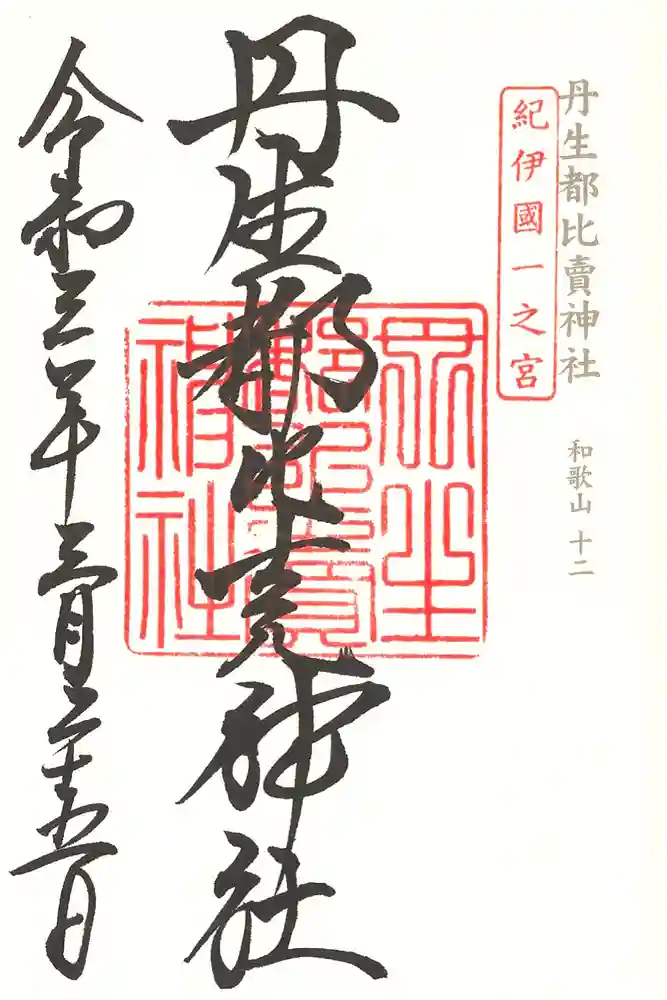 丹生都比賣神社
和歌山 十二
紀伊國一之宮
丹生都比売神社
丹生
都比賣
神社
令和三年三月二十五日